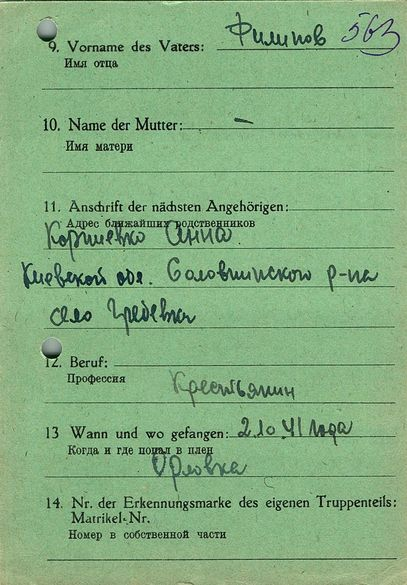 9. Vorname des Vaters: Филипов 563
Имя отца
10. Name der Mutter: —
Имя матери
11. Anschrift der nächsten Angehörigen:
Адрес ближайших родственников
Анна
Киевской обл. р-на
село Гребенка
12. Beruf:
Профессия
Крестьянин
13 Wann und wo gefangen: 2 10 41 года
Когда и где попал в плен
Орловка
14. Nr. der Erkennungsmarke des eigenen Truppenteils:
Matrikel-Nr.
Номер в собственной части